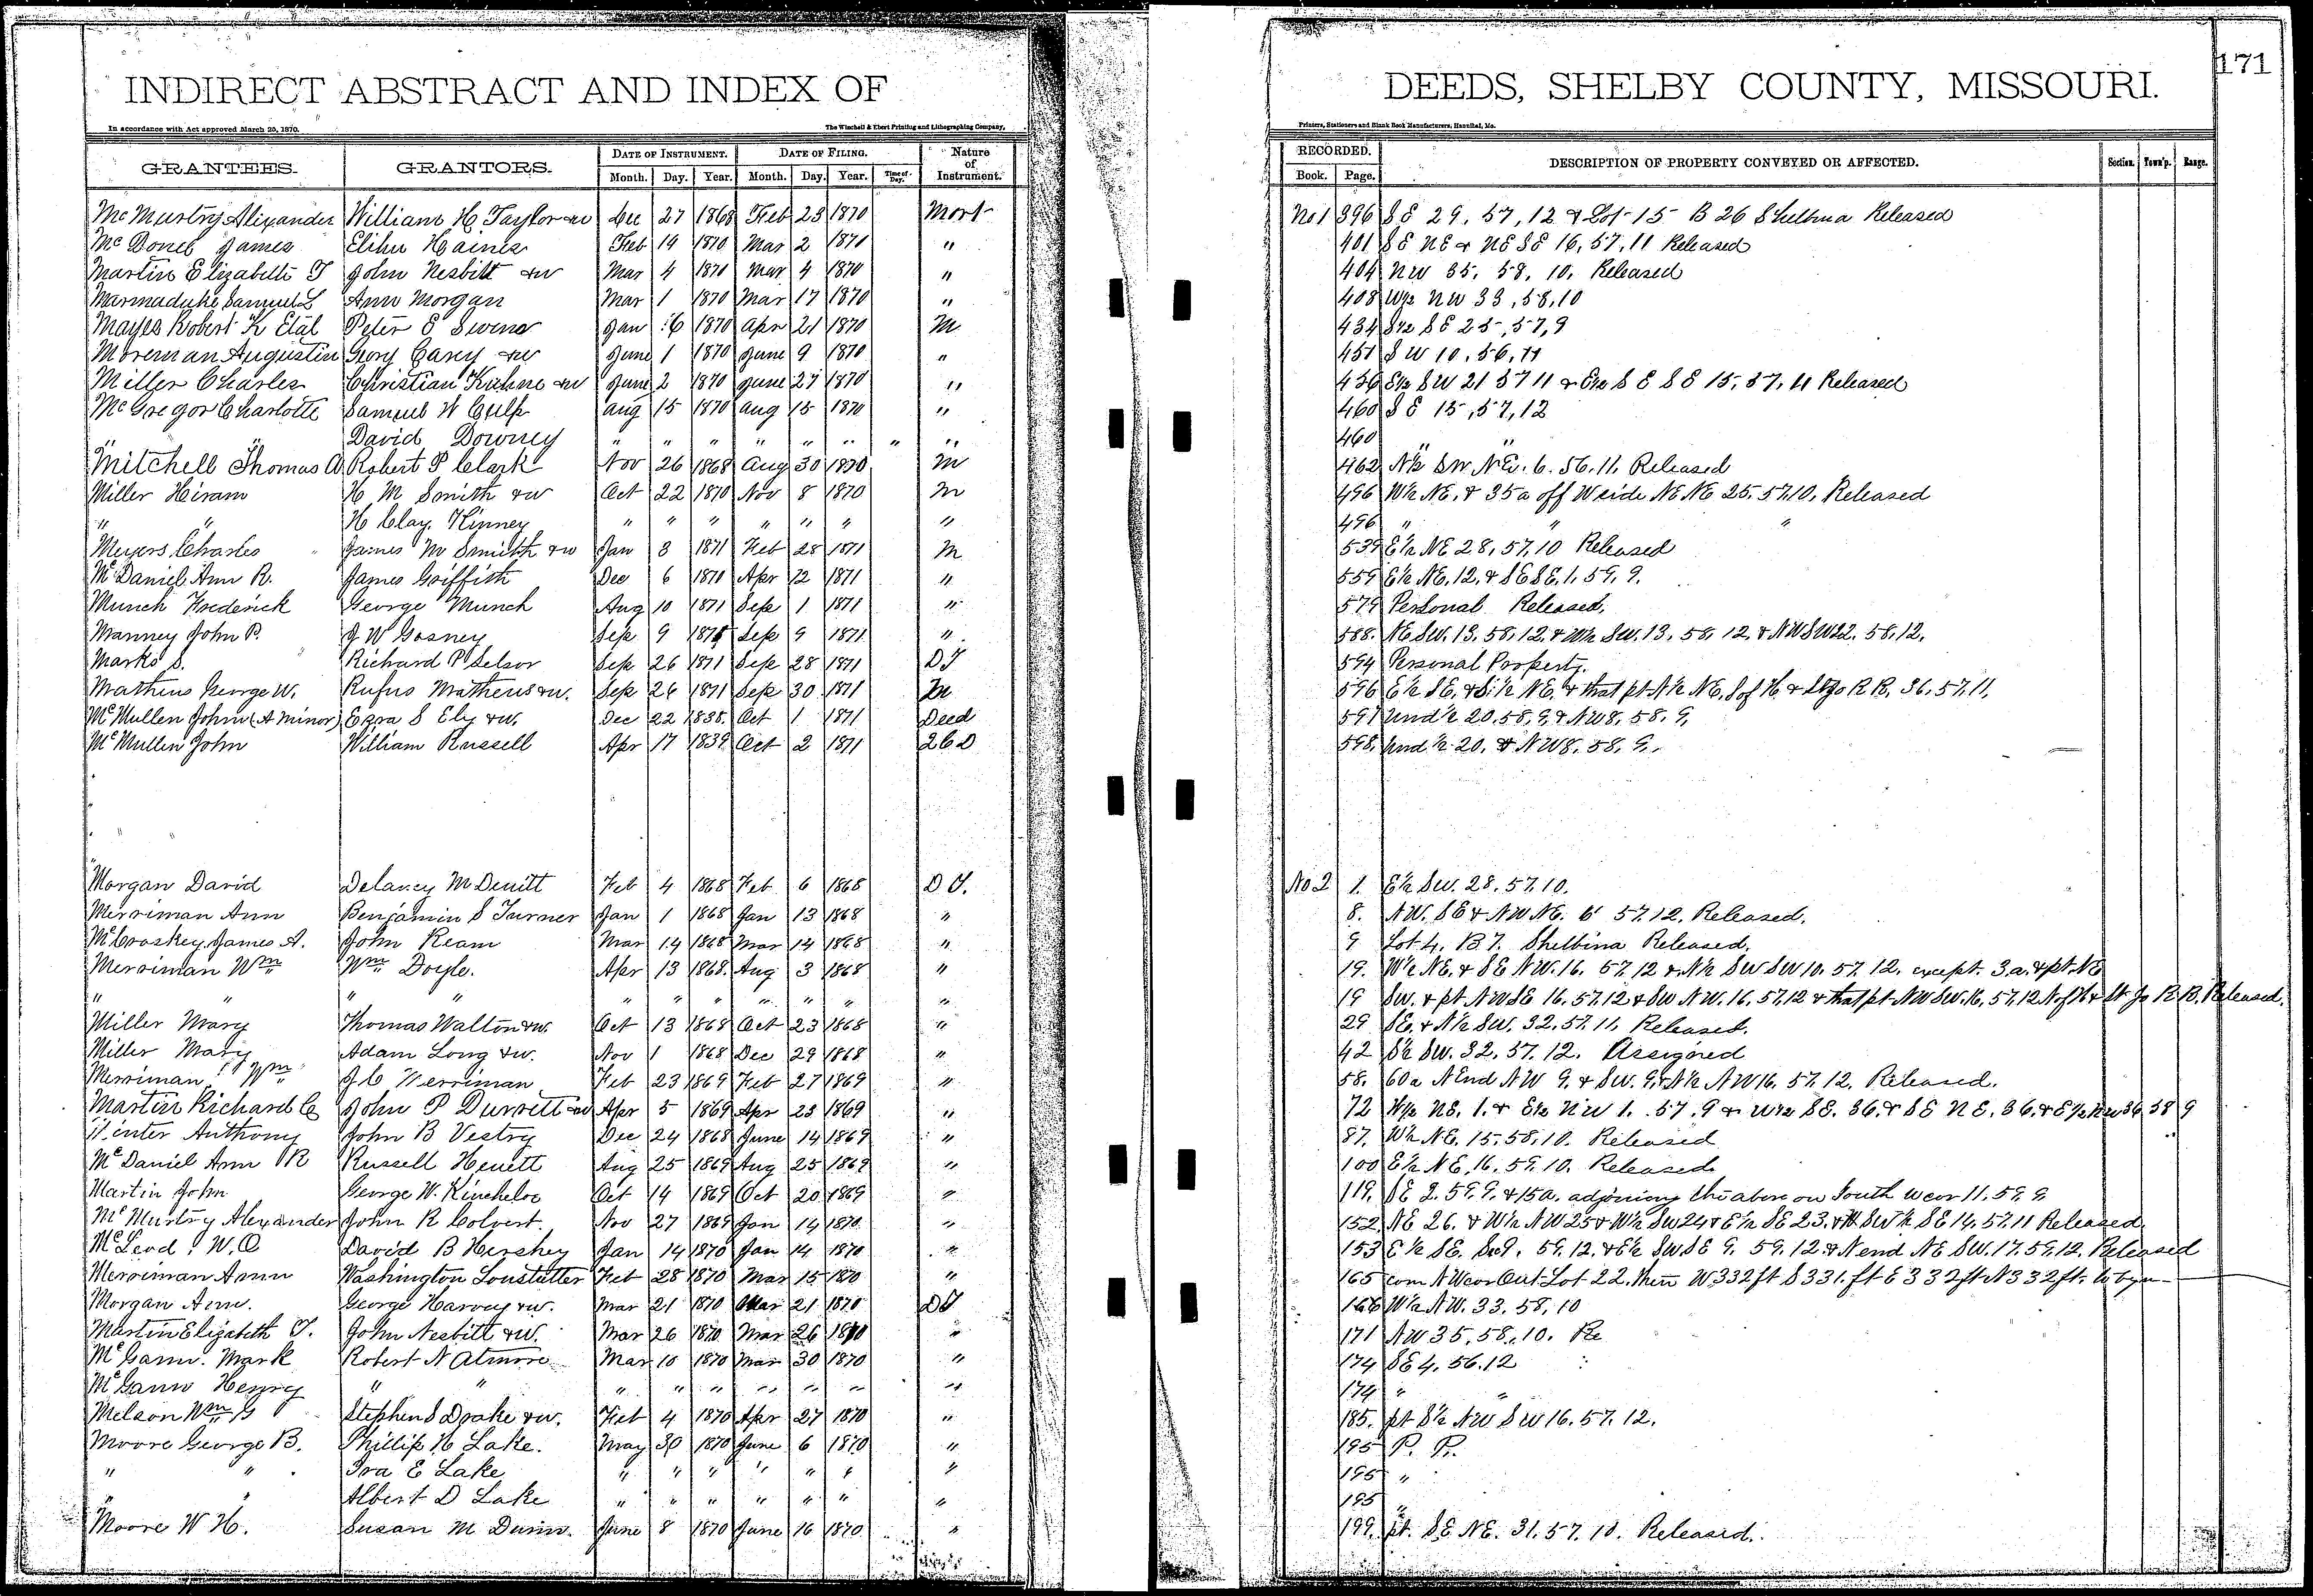 INDIRECT ABSTRACT AND INDEX OF DEEDS, SHELBY COUNTY, MISSOURI. 171
In accordance with Act approved March 25, 1870. The Winchell & Ebert Printing and Lithographing Company, Printers, Stationers and Blank Book Manufacturers, Hannibal, Mo.
GRANTEES. GRANTORS. DATE OF INSTRUMENT. DATE OF FILING. Nature of Instrument. RECORDED. DESCRIPTION OF PROPERTY CONVEYED OR AFFECTED. Section. Town'p. Range.
Month. Day. Year. Month. Day. Year. Time of Day. Book. Page.
McMurtry Alexander William H Taylor &w Dec 27 1868 Feb 23 1870 Mort No 1 396 SE 29, 57, 12 & Lot 15 B 26 Shelbina Released
McDonel James Elihu Haines Feb 19 1870 Mar 2 1870 " 401 SE NE & NE SE 16, 57, 11 Released
Martin Elizabeth T John Nesbitt &w Mar 4 1870 Mar 4 1870 " 404 NW 35, 58, 10, Released
Marmaduke Samuel L Ann Morgan Mar 1 1870 Mar 17 1870 " 408 W½ NW 33, 58, 10
Mayes Robert K Etal Peter E Jan 16 1870 Apr 21 1870 M 434 S½ SE 25, 57, 9
Moreman Augustin Geory Carey &w June 1 1870 June 9 1870 " 451 SW 10, 56, 11
Miller Charles Christian Kuhne &w June 2 1870 June 27 1870 " 456 SW 21 57 11 & E½ SE SE 15, 57, 11 Released
McGregor Charlotte Samuel W Culp Aug 15 1870 Aug 15 1870 " 460 SE 15, 57, 12
" " David Downey " " " " " " " " 460 " "
Mitchell Thomas A. Robert P Clark Nov 26 1868 Aug 30 1870 M 462 N½ SW NE. 6. 56. 11. Released
Miller Hiram H M Smith &w Oct 22 1870 Nov 8 1870 M 496 W½ NE. & 35a off W side NE NE 25. 57. 10. Released
" " H Clay. Kinney " " " " " " " 496 " " "
Meyers Charles James M Smith &w Jan 3 1871 Feb 28 1871 M 539 E½ NE 28, 57, 10 Released
McDaniel Ann R. James Griffith Dec 6 1870 Apr 12 1871 " 559 E½ NE. 12. & SE SE. 1. 59. 9.
Munch Frederick George Munch Aug 10 1871 Sep 1 1871 " 579 Personal Released.
Manney John P. J W Gosney Sep 9 1871 Sep 9 1871 " 588. NE SW. 13. 58, 12. & W½ SW. 13. 58, 12 & NW SW 22. 58, 12.
Marks S. Richard P Selsor Sep 26 1871 Sep 28 1871 DT 594 Personal Property.
Mathews George W. Rufus Mathews &w. Sep 26 1871 Sep 30 1871 M 596 E½ SE. & S½ NE. & that pt N½ NE, S of H & St Jo R R, 36, 57, 11,
McMullen John (A minor) Ezra S Ely &w. Dec 22 1838. Oct 1 1871 Deed 597 Und ½ 20, 58, 9, & NW 8, 58, 9,
McMullen John William Russell Apr 17 1839 Oct 2 1871 2 C D 598. Und ½ 20, & NW 8, 58, 9.
Morgan David Delaney McDevitt Feb 4 1868 Feb 6 1868 DT. No 2 1. E½ SW. 28. 57. 10.
Merriman Ann Benjamin S Turner Jan 1 1868 Jan 13 1868 " 8. NW. SE & NW NE. 6 57. 12. Released.
McCroskey James A. John Ream Mar 14 1868 Mar 14 1868 " 9 Lot 4. B 7. Shelbina Released.
Merriman Wm Wm Doyle. Apr 13 1868. Aug 3 1868 " 19. W½ NE. & SE NW. 16. 57. 12 & N½ SW SW 10. 57. 12. except. 3 a. & pt NE
" " " " " " " " " " " 19 SW. & pt NW SE 16. 57. 12 & SW NW. 16. 57. 12 & that pt NW SW. 16. 57. 12 N of H & St Jo R R. Released.
Miller Mary Thomas Walton &w. Oct 13 1868 Oct 23 1868 " 29 SE. & N½ SW. 32. 57. 11. Released.
Miller Mary Adam Long &w. Nov 1 1868 Dec 29 1868 " 42 S½ SW. 32. 57. 12. Assigned
Merriman Wm J C Merriman Feb 23 1869 Feb 27 1869 " 58. 60a N End NW 9. & SW. 9. & N½ NW 16. 57. 12. Released.
Martin Richard C John P Durrett &w Apr 5 1869 Apr 23 1869 " 72 W½ NE. 1. & E½ NW 1. 57. 9 & W½ SE. 36. & SE NE. 36. & E½ NW 36 58 9
Minter Anthony John B Vestry Dec 24 1868 June 14 1869 " 87. W½ NE. 15. 58. 10. Released
McDaniel Ann R Russell Hewett Aug 25 1869 Aug 25 1869 " 100 E½ NE. 16. 59. 10. Released
Martin John George W. Kincheloe Oct 14 1869 Oct 20 1869 " 119. SE 2. 59. 9. & 15a. adjoining the above on South W cor 11. 59. 9
McMurtry Alexander John R Colvert Nov 27 1869 Jan 14 1870 " 152 NE 26. & W½ NW 25 & W½ SW 24 & E½ SE 23. & SW ½ SE 14. 57. 11 Released
McLeod. W. O David B Hershey Jan 14 1870 Jan 14 1870 " 153 E½ SE. Sec 9. 59. 12. & E½ SW SE 9. 59. 12. & N end NE SW. 17. 59. 12. Released
Merriman Ann Washington Loustutter Feb 28 1870 Mar 15 1870 " 165 com NW cor Out-Lot 22. then W 332 ft S 331. ft E 332 ft N 332 ft. to begn
Morgan Ann. George Harvey &w. Mar 21 1870 Mar 21 1870 DT 166 W½ NW. 33. 58, 10
Martin Elizabeth T. John Nesbitt &w. Mar 26 1870 Mar 26 1870 " 171 NW 35. 58. 10. Re
McGann. Mark Robert N Atmore Mar 10 1870 Mar 30 1870 " 174 SE 4. 56. 12
McGann Henry " " " " " " " " " 174 " "
Melson Wm G Stephen S Drake &w. Feb 4 1870 Apr 27 1870 " 185. pt S½ NW SW 16. 57. 12.
Moore George B. Phillip H Lake. May 30 1870 June 6 1870 " 195 P. P.
" " Ira E Lake " " " " " " " 195 "
" " Albert D Lake " " " " " " " 195 "
Moore W H. Susan M Dunn. June 8 1870 June 16 1870 " 199. pt. SE NE. 31. 57. 10. Released.